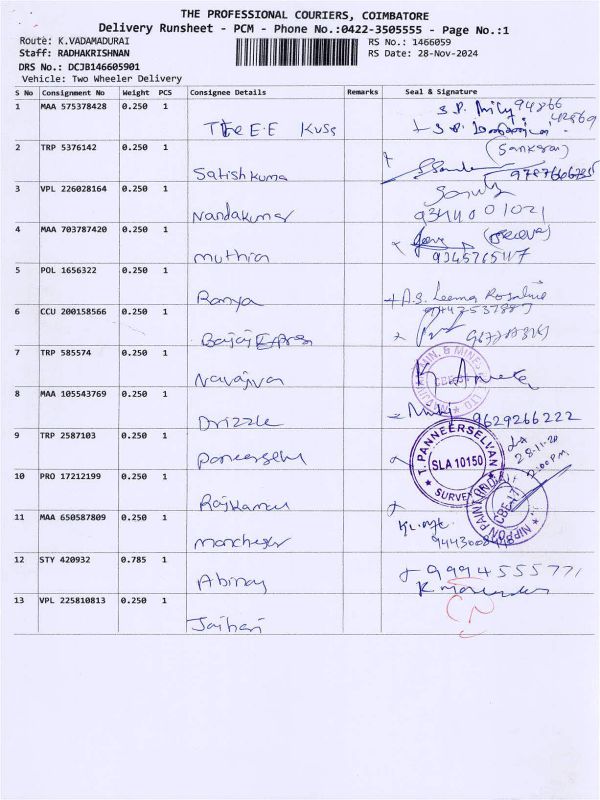 THE PROFESSIONAL COURIERS, COIMBATORE
Delivery Runsheet - PCM - Phone No.:0422-3505555 - Page No.:1
Route: K.VADAMADURAI RS No.: 1466059
Staff: RADHAKRISHNAN RS Date: 28-Nov-2024
DRS No.: DCJB146605901
Vehicle: Two Wheeler Delivery
S No Consignment No Weight PCS Consignee Details Remarks Seal & Signature
1 MAA 575378428 0.250 1
2 TRP 5376142 0.250 1 (Sankar)
Satishkuma
3 VPL 226028164 0.250 1
Nandakumar
4 MAA 703787420 0.250 1
muthia 9345765117
5 POL 1656322 0.250 1
Ramya A.S. Leema Rosaline
6 CCU 200158566 0.250 1
Bajaj
7 TRP 585574 0.250 1
Navajiva
8 MAA 105543769 0.250 1
Drizzle 9629266222
9 TRP 2587103 0.250 1 T. PANNEERSELVAN
SLA 10150
SURVEYOR
28.11.20
Paneerselu
10 PRO 17212199 0.250 1 NIPPON PAINT (INDIA)
CBE-17
Rajkamal
11 MAA 650587809 0.250 1
manchester
12 STY 420932 0.785 1 9994555771
Abinay
13 VPL 225810813 0.250 1
Jaihari